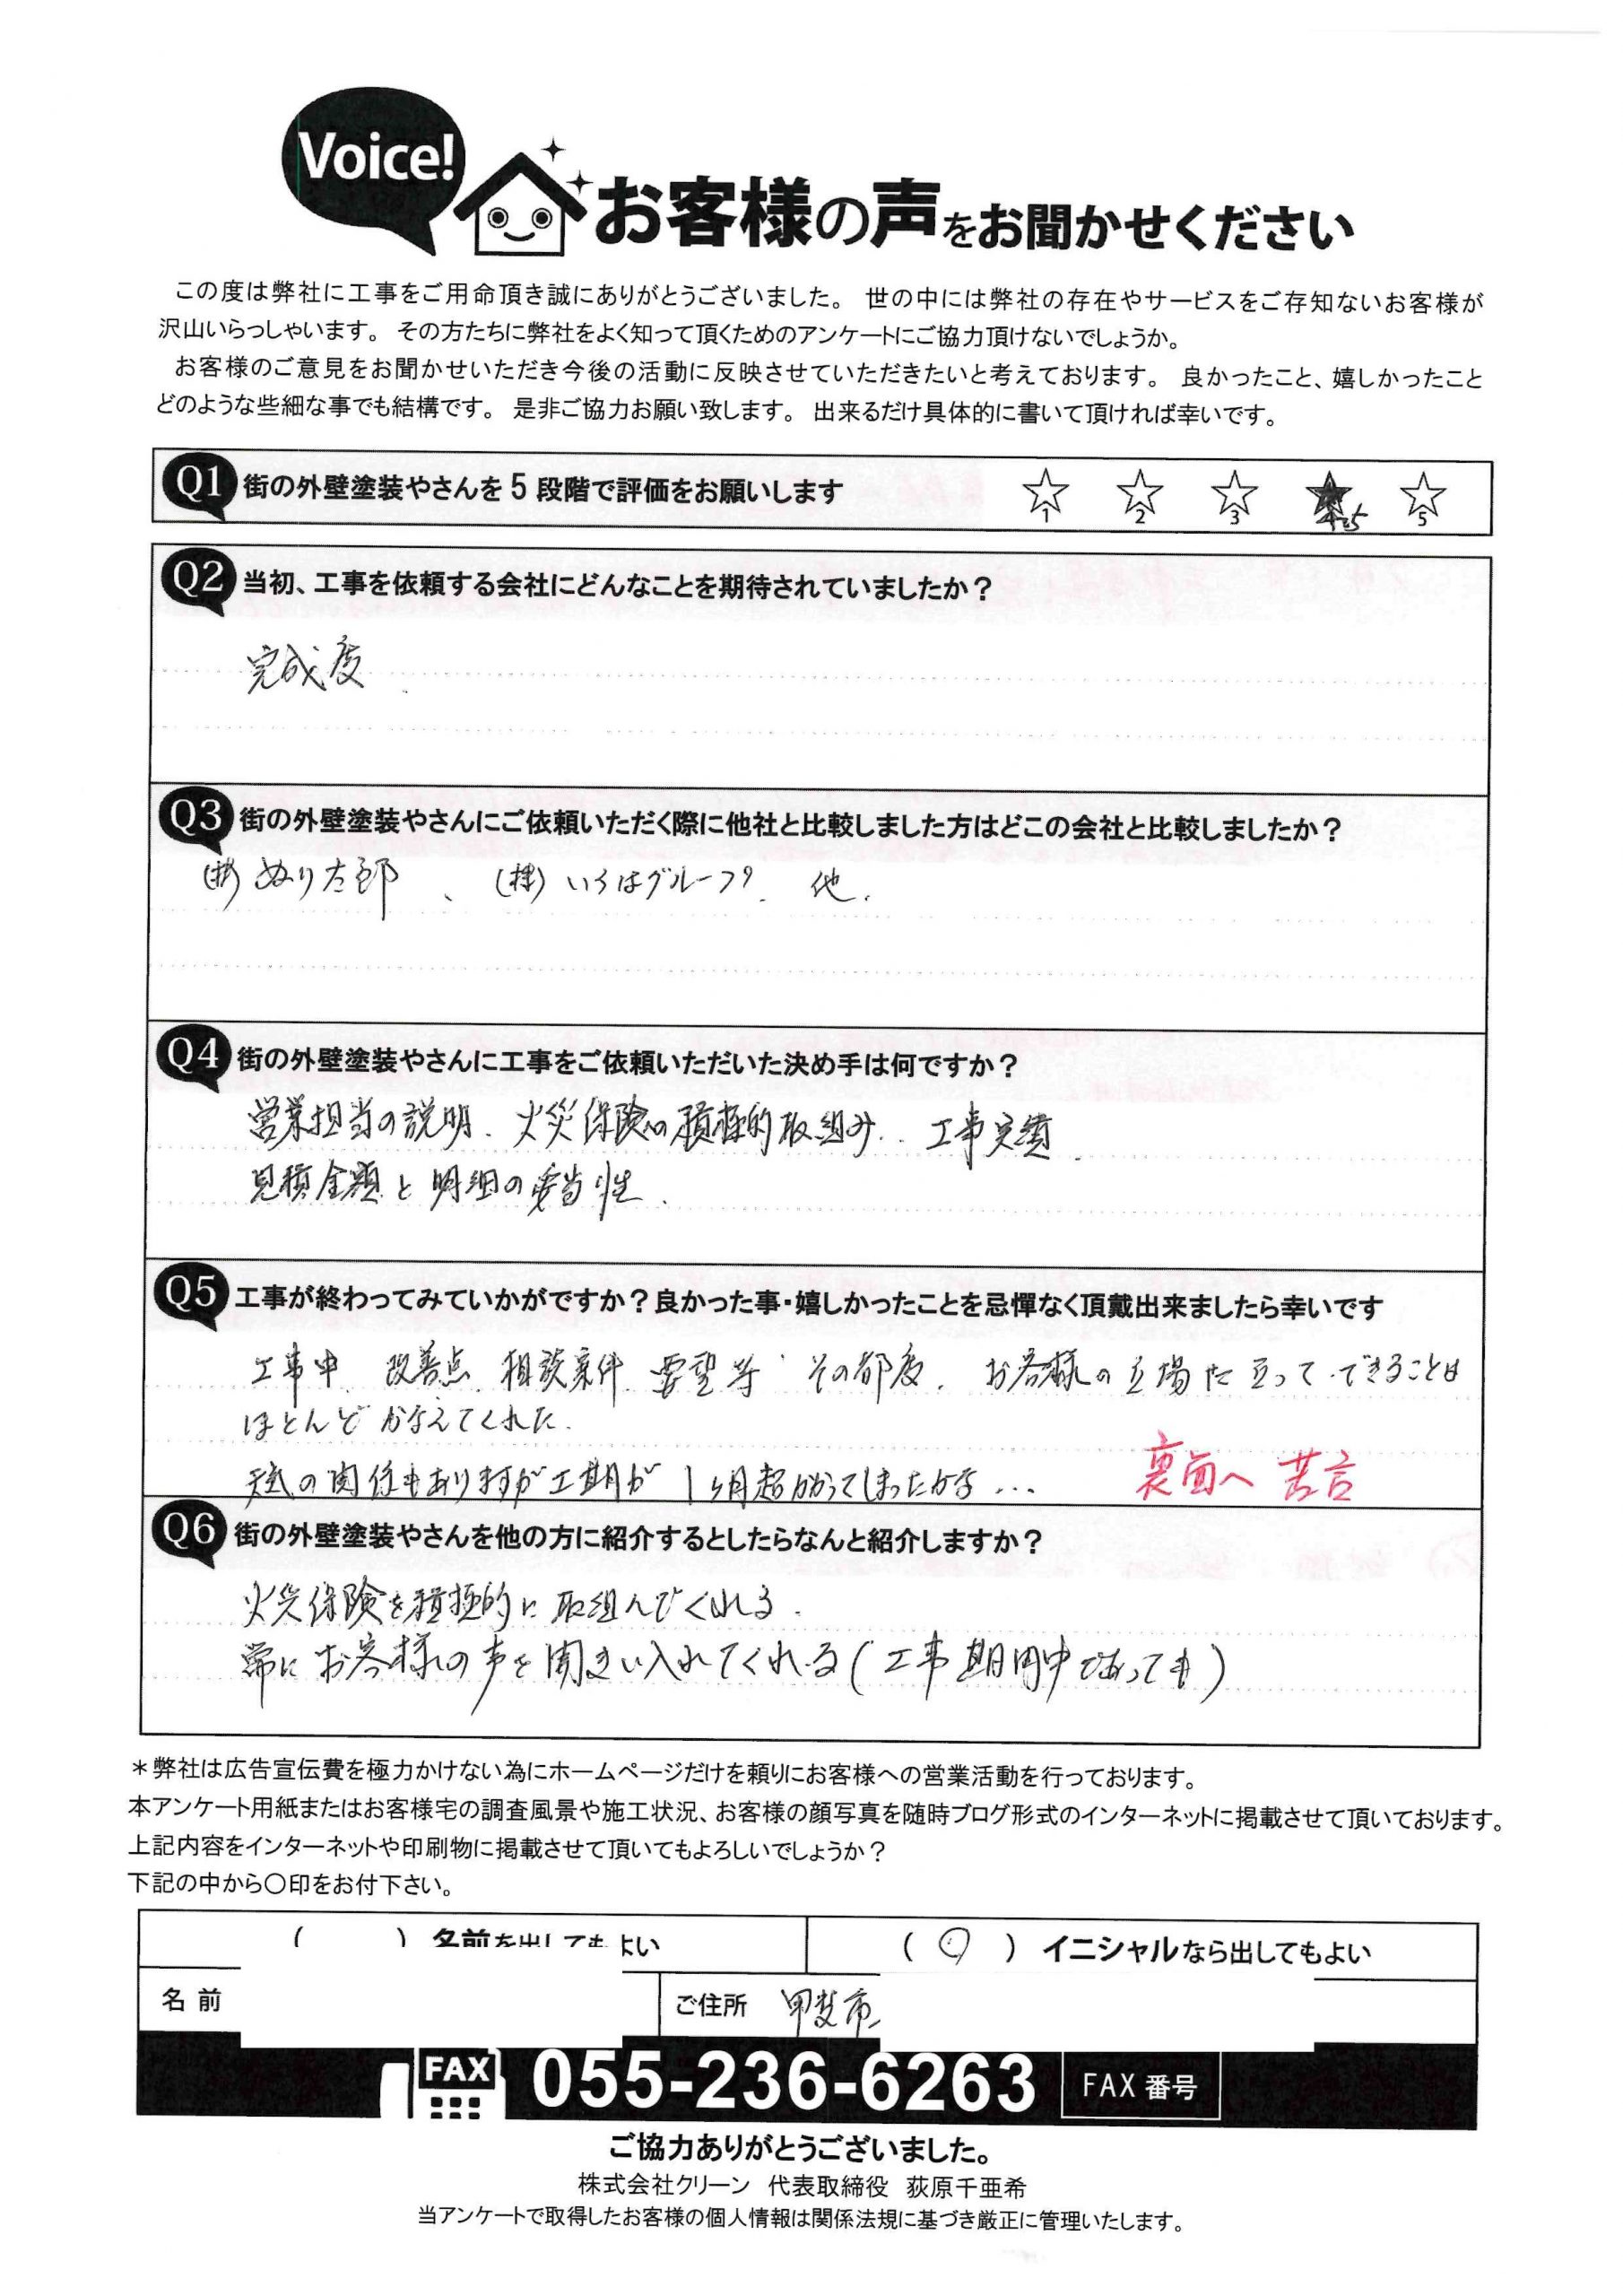 Voice!
お客様の声をお聞かせください
この度は弊社に工事をご用命頂き誠にありがとうございました。 世の中には弊社の存在やサービスをご存知ないお客様が
沢山いらっしゃいます。 その方たちに弊社をよく知って頂くためのアンケートにご協力頂けないでしょうか。
お客様のご意見をお聞かせいただき今後の活動に反映させていただきたいと考えております。 良かったこと、嬉しかったこと
どのような些細な事でも結構です。 是非ご協力お願い致します。 出来るだけ具体的に書いて頂ければ幸いです。
Q1 街の外壁塗装やさんを5段階で評価をお願いします ☆1 ☆2 ☆3 ★4.5 ☆5
Q2 当初、工事を依頼する会社にどんなことを期待されていましたか？
完成度
Q3 街の外壁塗装やさんにご依頼いただく際に他社と比較しました方はどこの会社と比較しましたか？
(株)ぬり太郎、(株)いろはグループ. 他.
Q4 街の外壁塗装やさんに工事をご依頼いただいた決め手は何ですか？
営業担当の説明、火災保険の積極的取組み、工事実績、
見積金額と明細の妥当性.
Q5 工事が終わってみていかがですか？良かった事・嬉しかったことを忌憚なく頂戴出来ましたら幸いです
工事中、改善点、相談案件、要望等、その都度、お客様の立場に立ってできることは
ほとんどかなえてくれた.
天気の関係もありますが工期が1ヶ月超かかってしまったかな…
裏面へ 苦言
Q6 街の外壁塗装やさんを他の方に紹介するとしたらなんと紹介しますか？
火災保険を積極的に取組んでくれる.
常にお客様の声を聞き入れてくれる(工事期間中であっても)
＊弊社は広告宣伝費を極力かけない為にホームページだけを頼りにお客様への営業活動を行っております。
本アンケート用紙またはお客様宅の調査風景や施工状況、お客様の顔写真を随時ブログ形式のインターネットに掲載させて頂いております。
上記内容をインターネットや印刷物に掲載させて頂いてもよろしいでしょうか？
下記の中から〇印をお付下さい。
( ) 名前を出してもよい ( 〇 ) イニシャルなら出してもよい
名前 ご住所 甲斐市
FAX 055-236-6263 FAX番号
ご協力ありがとうございました。
株式会社クリーン 代表取締役 荻原千亜希
当アンケートで取得したお客様の個人情報は関係法規に基づき厳正に管理いたします。